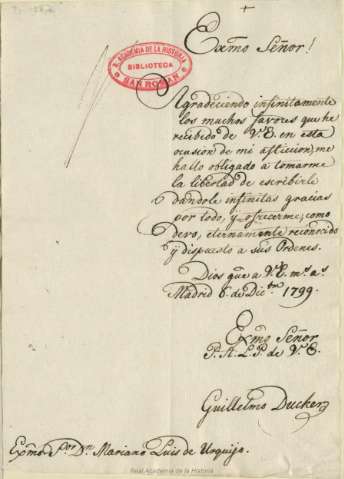 Exmo Señor!
R. ACADEMIA DE LA HISTORIA
BIBLIOTECA
SAN ROMAN
Agradeciendo infinitamente
los muchos favores que he
recebido de V.E. en esta
ocasion de mi afliccion, me
hallo obligado a tomarme
la libertad de escribirle
dandole infinitas gracias
por todo, y ofrecerme, como
devo, eternamente reconocido
y dispuesto a sus Ordenes.
Dios gue a V.E. ms. as.
Madrid 6 de Dicbre 1799.
Exmo Señor
P. A. L. P. de V. E.
Guillelmo Ducker
Exmo Sor Dn Mariano Luis de Urquijo.
Real Academia de la Historia